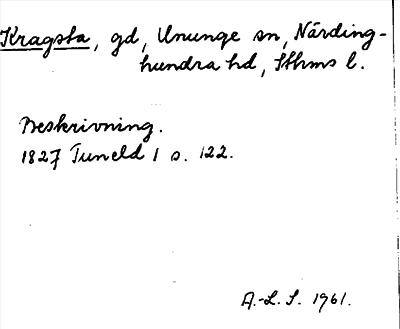 Kragsta, gd, Ununge sn, Närding-
hundra hd, Sthms l.
Beskrivning.
1827 Tuneld 1 s. 122.
A.-L. S. 1961.